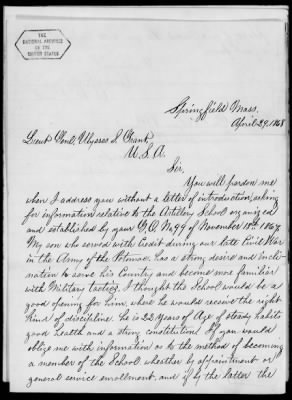 THE
NATIONAL ARCHIVES
OF THE
UNITED STATES
Springfield Mass.
April 29, 1868
Lieut Genl Ulysses S. Grant
U.S.A.
Sir,
You will pardon me
when I address you without a letter of introduction, asking
for information relative to the Artillery School organized
and established by your G.O. No 99 of November 18th 1867.
My son who served with Credit during our late Civil War
in the Army of the Potomac, has a strong desire and incli-
nation to serve his Country and become more familiar
with Military tactics, I thought the School would be a
good opening for him, where he would receive the right
kind of discipline. he is 22 Years of Age of steady habits
good health and a strong constitution. If you would
oblige me with information as to the method of becoming
a member of the School whether by appointment or
general service enrollment, and if by the latter the